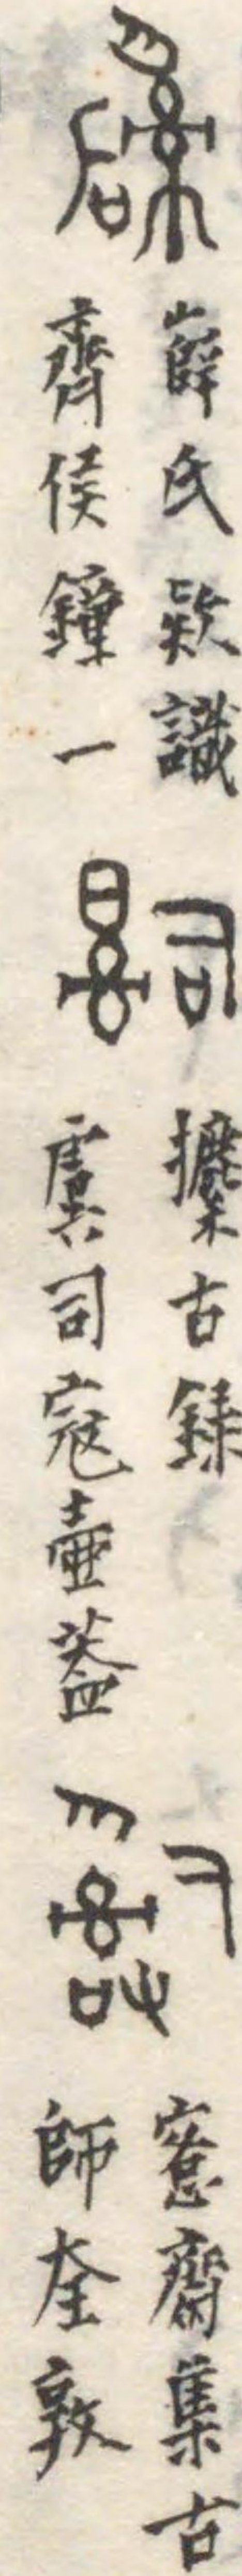 薛氏款識
齊侯鐘一
攈古録
虞司寇壺蓋
愙齋集古
師𡘇敦